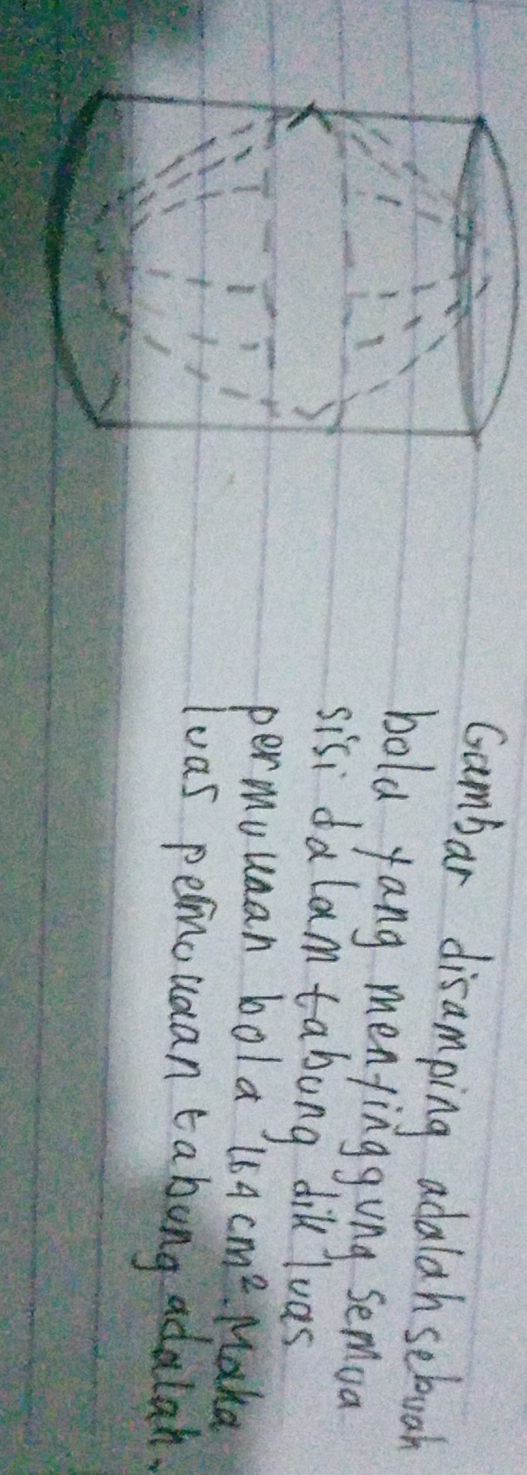 Gambar disamping adalah sebuah
bola yang menyinggung semua
sisi dalam tabung dik luas
permukaan bola 164 cm². Maka
luas permukaan tabung adalah.